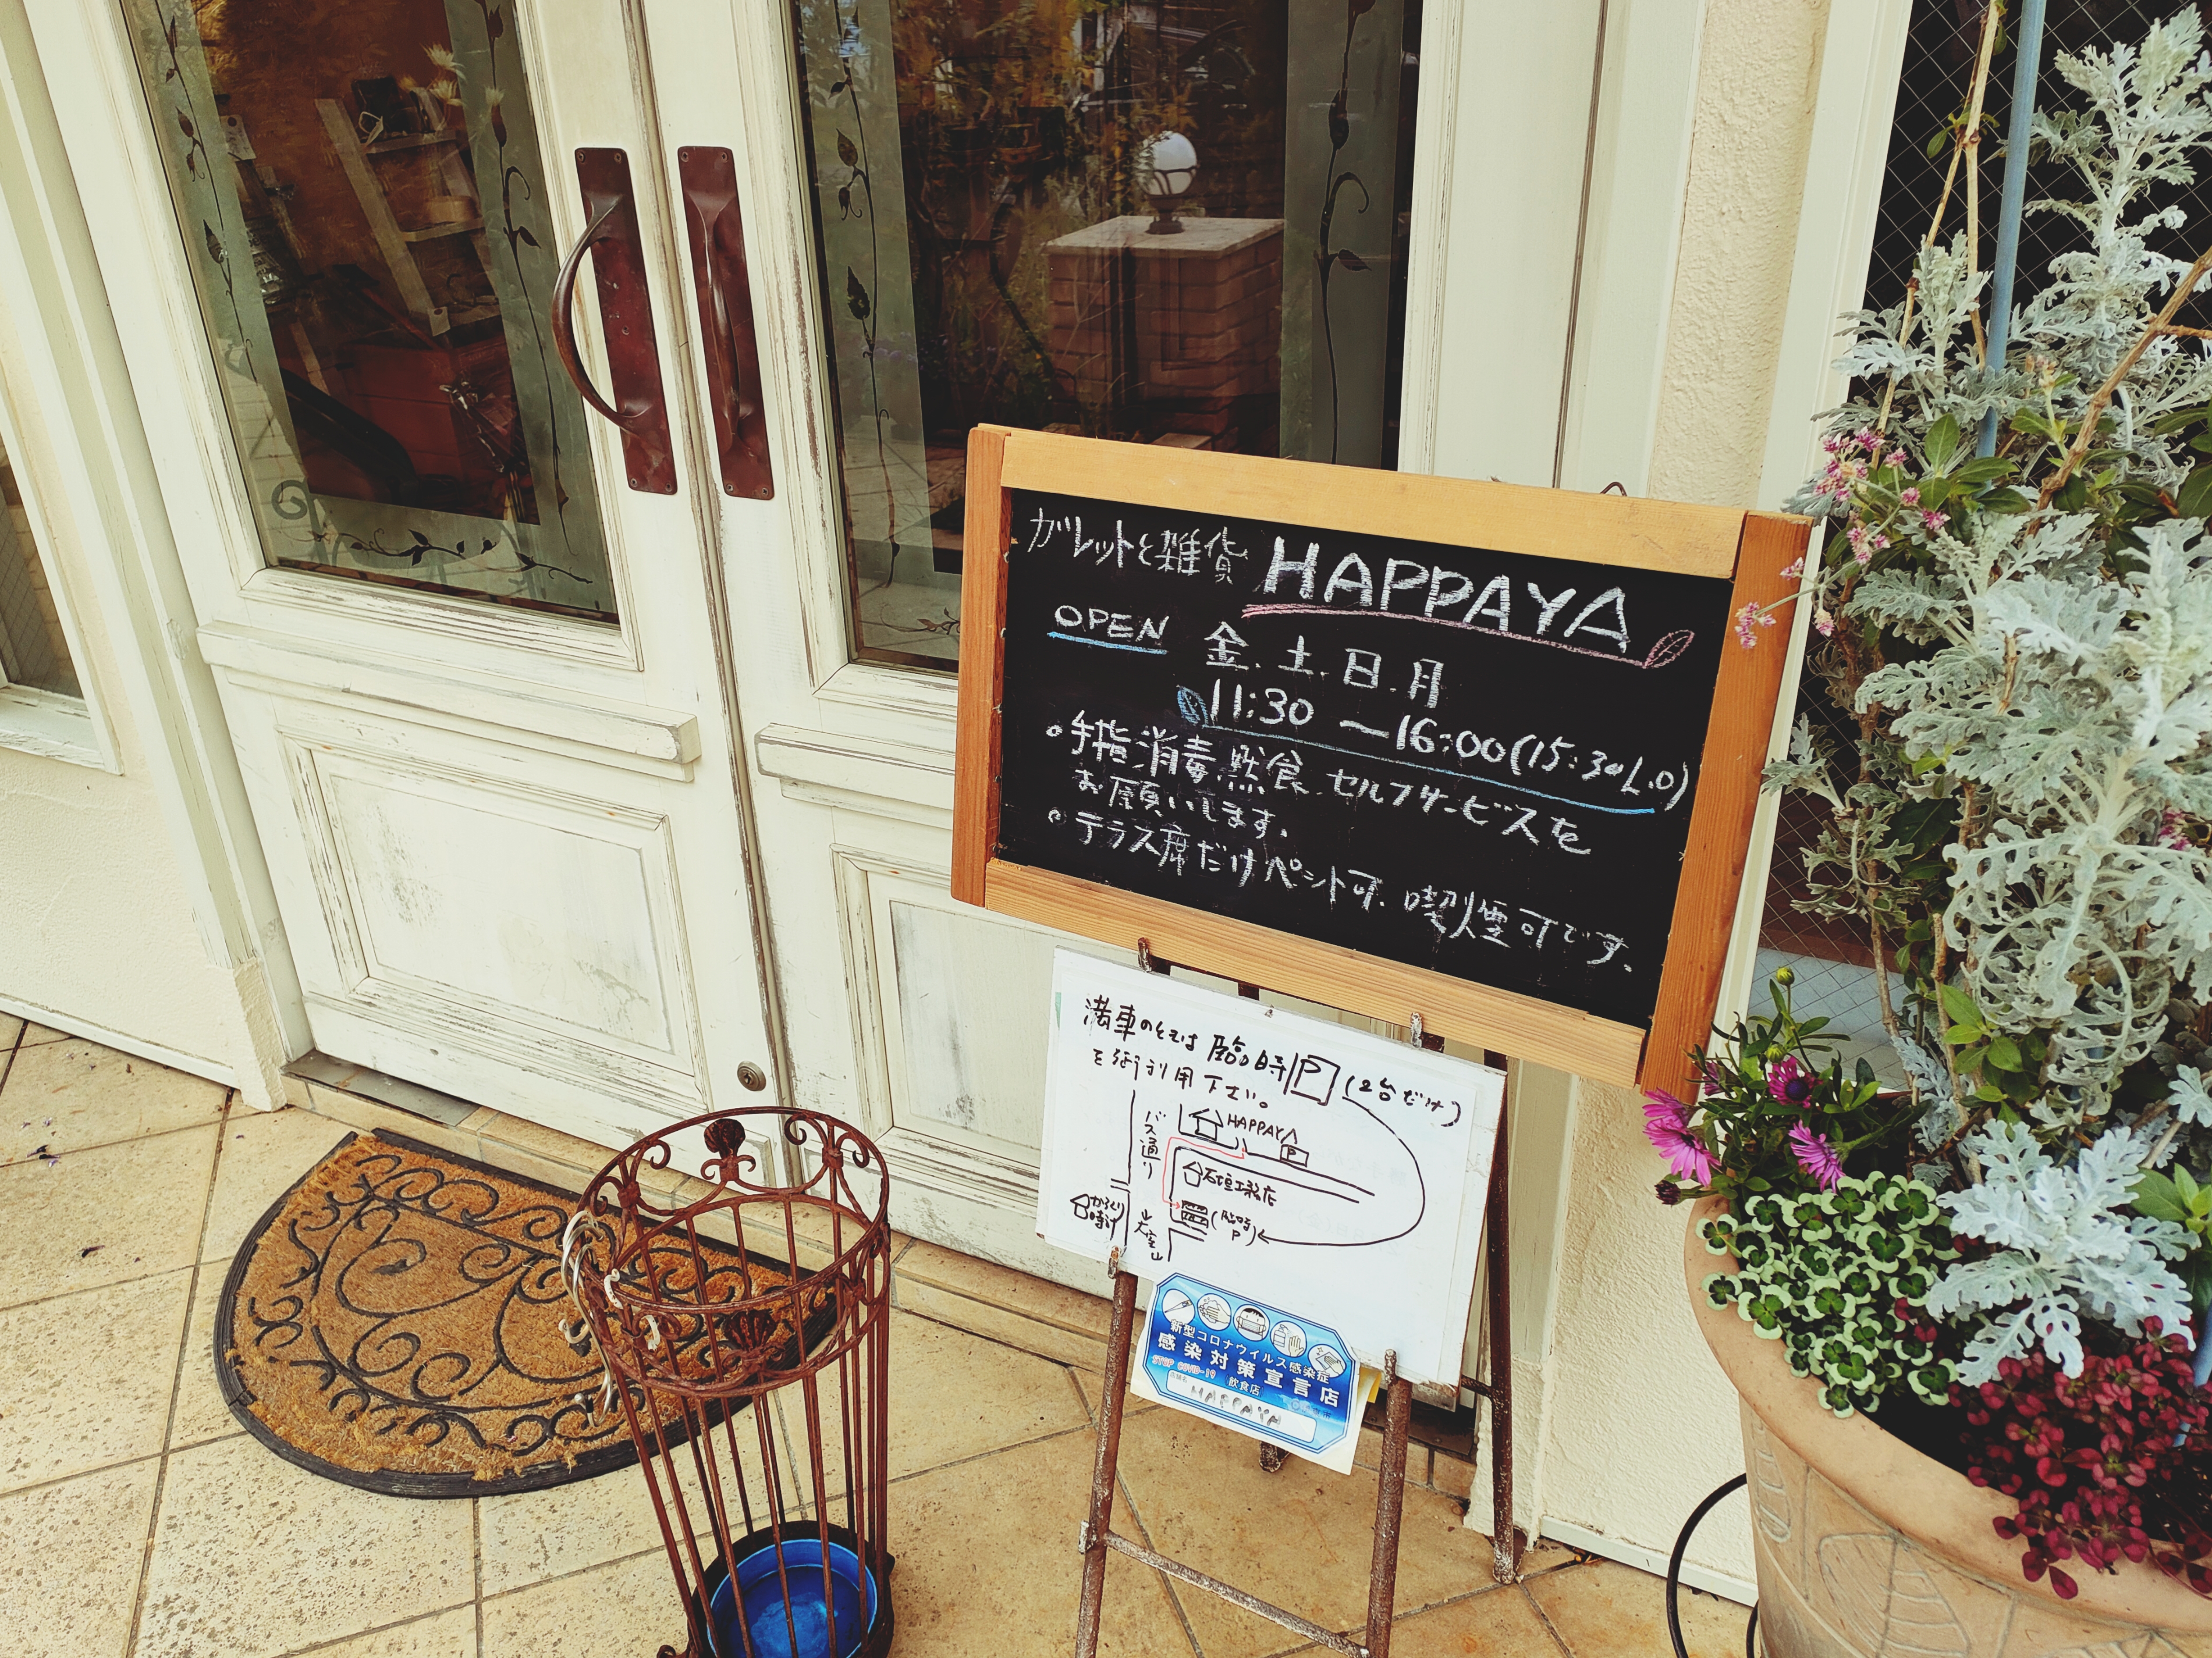 ガレットと雑貨 HAPPAYA
OPEN 金.土.日.月
11:30 〜16:00(15:30L.O)
○手指消毒.黙食.セルフサービスを
お願いします.
○テラス席だけペント可.喫煙可です.
満車のときは臨時P(2台だけ)
を御利用下さい。
HAPPAYA
P
バス通り
石垣工務店
からくり
時計
(臨時
P)
新型コロナウイルス感染症
感染対策宣言店
STOP COVID-19 飲食店
店舗名
HAPPAYA